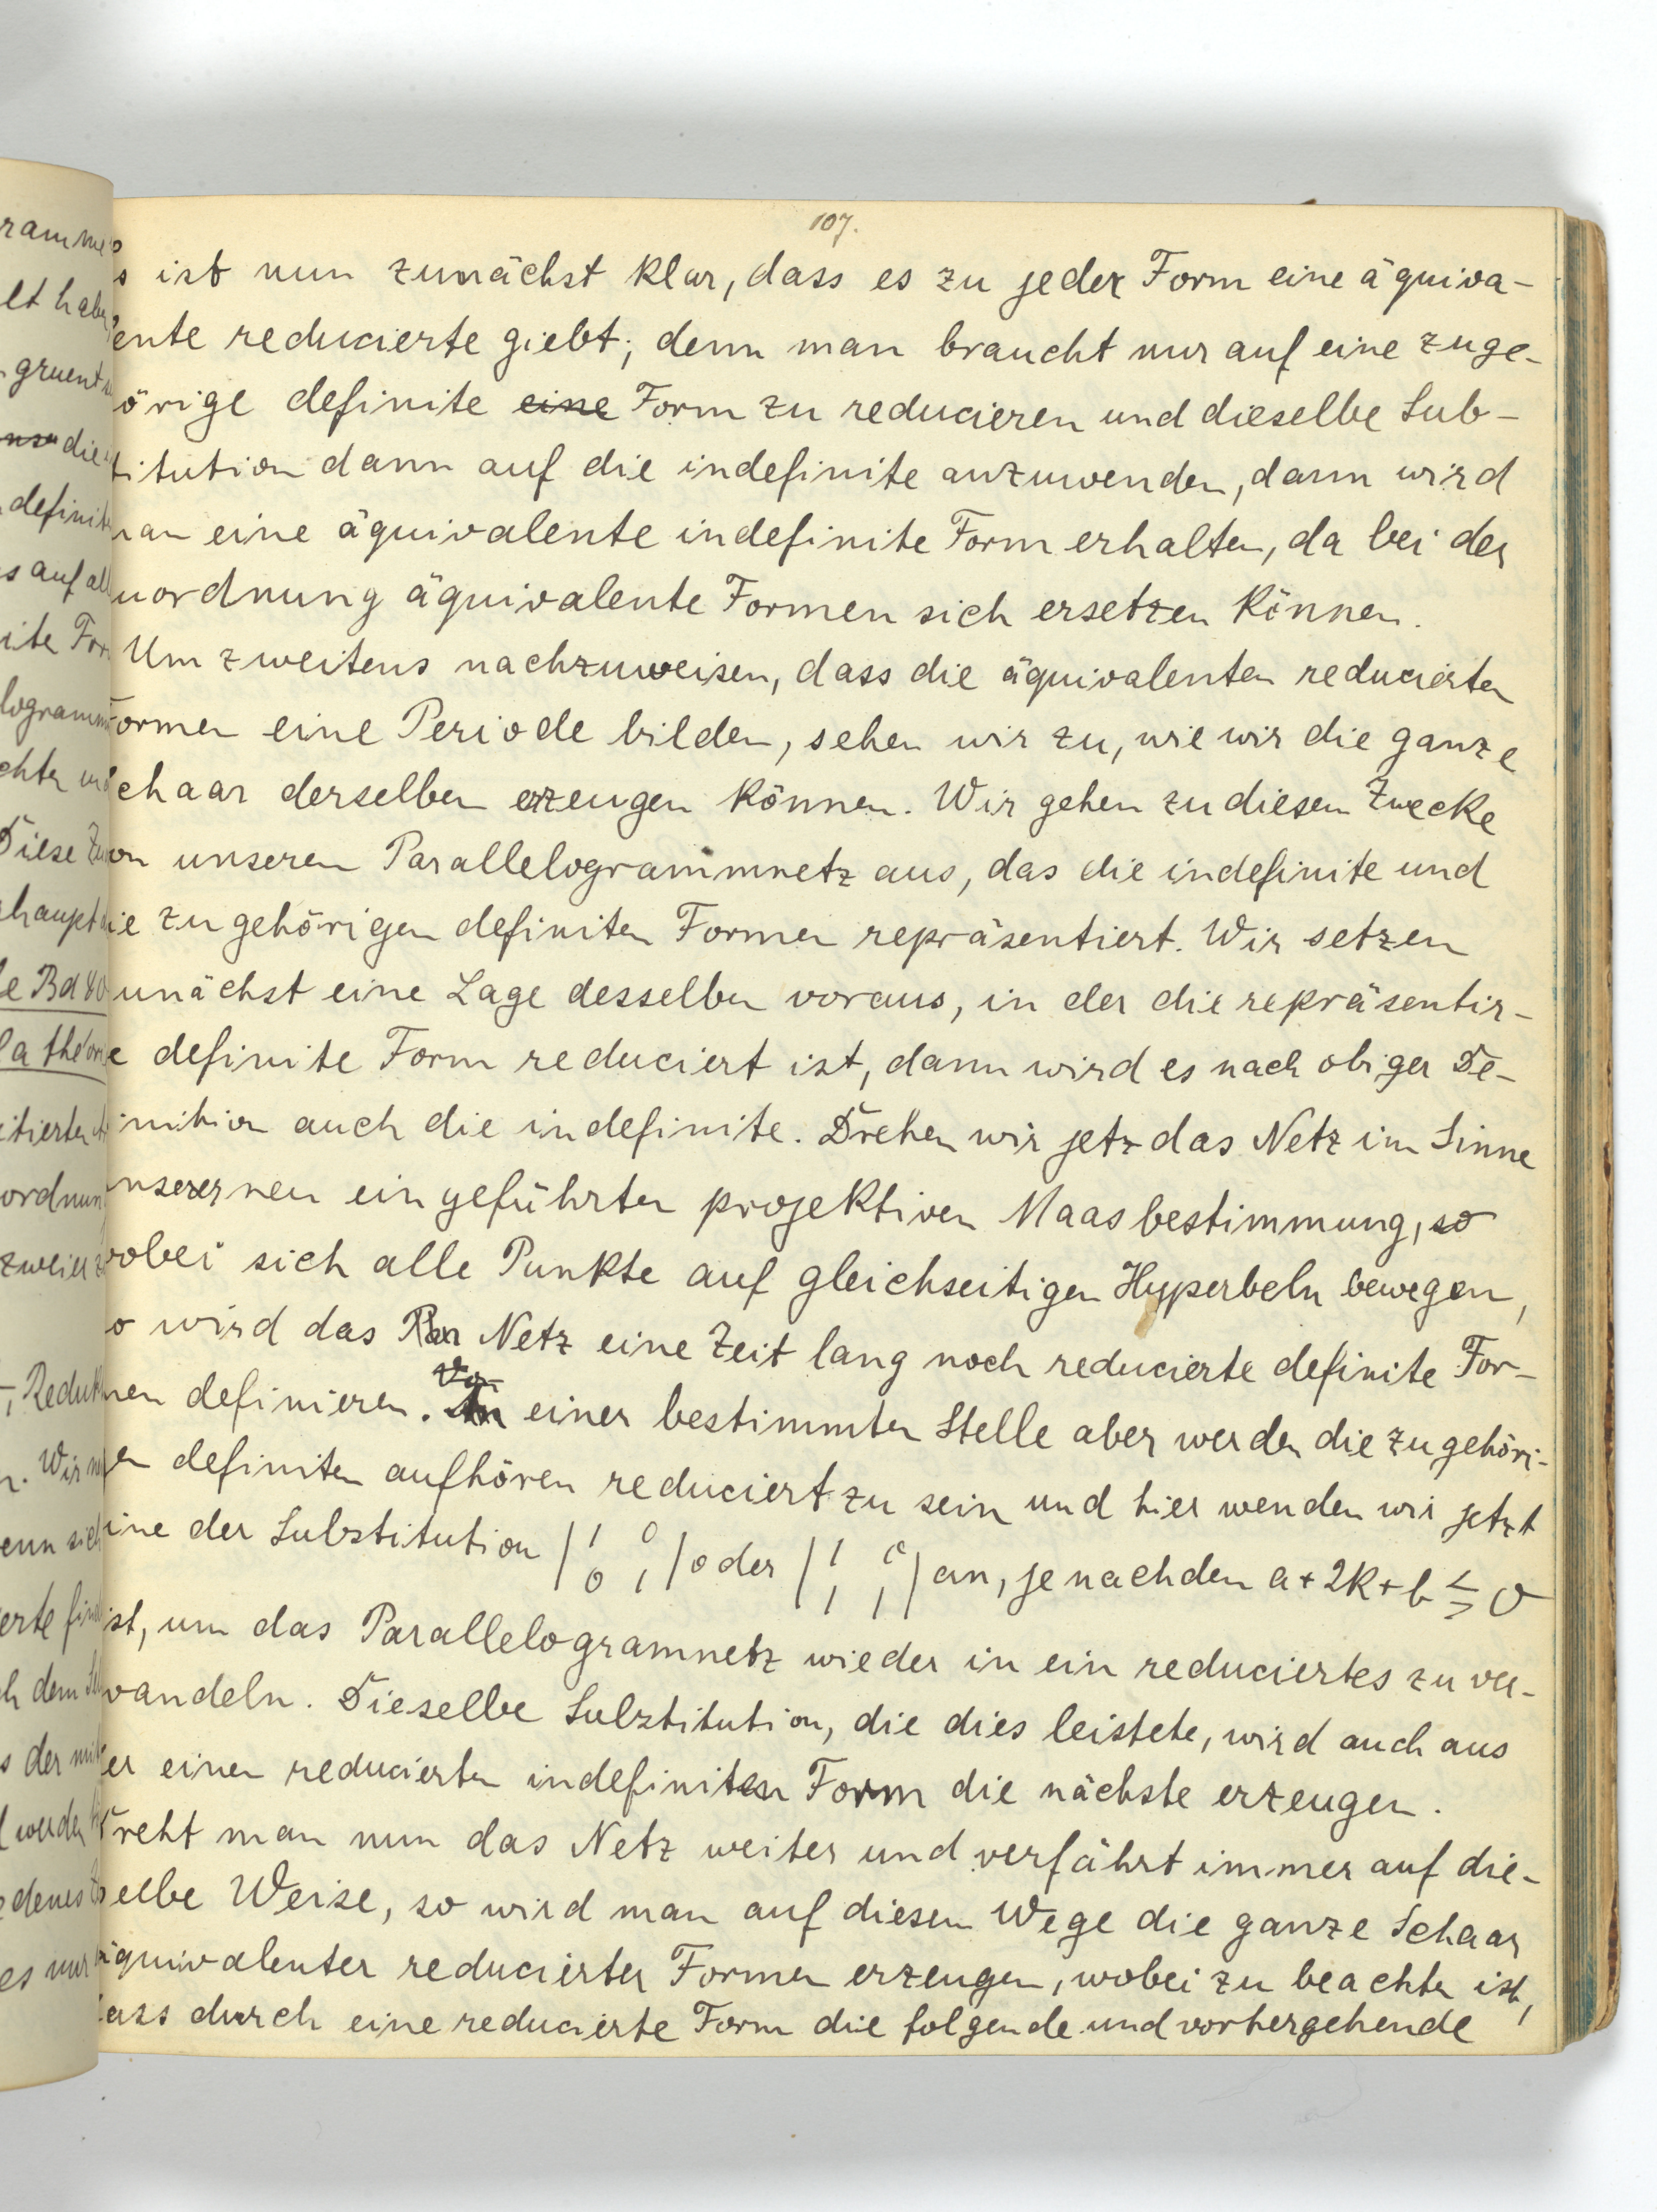 107.
s ist nun zunächst klar, dass es zu jeder Form eine äquiva-
ente reducierte giebt; denn man braucht nur auf eine zuge-
örige definite eine Form zu reducieren und dieselbe Sub-
titution dann auf die indefinite anzuwenden, dann wird
an eine äquivalente indefinite Form erhalten, da bei der
uordnung äquivalente Formen sich ersetzen können.
Um zweitens nachzuweisen, dass die äquivalenten reducierten
ormen eine Periode bilden, sehen wir zu, wie wir die ganze
chaar derselben erzeugen können. Wir gehen zu diesem Zwecke
on unserem Parallelogrammnetz aus, das die indefinite und
ie zugehörigen definiten Formen repräsentiert. Wir setzen
unächst eine Lage desselben voraus, in der die repräsentir-
e definite Form reduciert ist, dann wird es nach obiger De-
inition auch die indefinite. Drehen wir jetz das Netz im Sinne
nserer neu eingeführten projektiven Maasbestimmung, so
wobei sich alle Punkte auf gleichseitigen Hyperbeln bewegen,
o wird das Par Netz eine Zeit lang noch reducierte definite For-
men definieren. Von einer bestimmten Stelle aber werden die zugehöri-
en definiten aufhören reduciert zu sein und hier wenden wir jetzt
ine der Substitution | 1 0 0 1 | oder | 1 0 1 1 | an, je nachdem a + 2k + b ≦≧ 0
ist, um das Parallelogramnetz wieder in ein reduciertes zu ver-
wandeln. Dieselbe Substitution, die dies leistete, wird auch aus
er einen reducierten indefiniten Form die nächste erzeugen.
Dreht man nun das Netz weiter und verfährt immer auf die-
selbe Weise, so wird man auf diesem Wege die ganze Schaar
äquivalenter reducierter Formen erzeugen, wobei zu beachten ist,
ass durch eine reducierte Form die folgende und vorhergehende